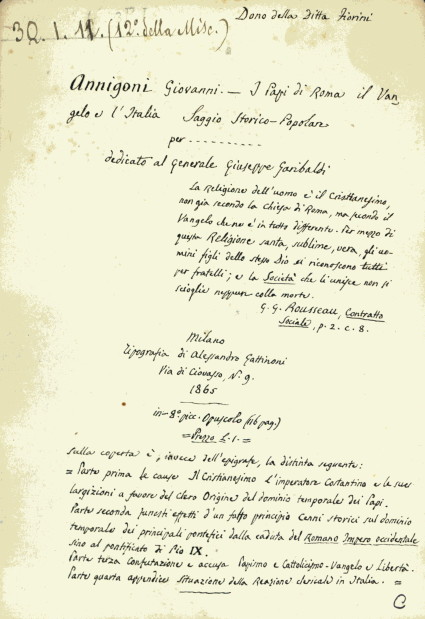 Dono della Ditta Fiorini
3Q. I. 11. (12º. della Misc.)
Annigoni Giovanni. — I Papi di Roma il Van-
gelo e l'Italia Saggio Storico-Popolare
per ----------
dedicato al Generale Giuseppe Garibaldi
La Religione dell'uomo è il Cristianesimo,
non già secondo la Chiesa di Roma, ma secondo il
Vangelo che ne è in tutto differente. Per mezzo di
questa Religione santa, sublime, vera, gli uo-
mini figli dello stesso Dio si riconoscono tutti
per fratelli; e la Società che li unisce non si
scioglie neppur colla morte.
G. G. Rousseau, Contratto
Sociale, p. 2. c. 8.
Milano
Tipografia di Alessandro Gattinoni
Via di Ciovasso, N. 9.
1865
in-8º. picc. Opuscolo (116 pag.)
= Prezzo L. 1. =
sulla coperta è, invece dell'epigrafe, la distinta seguente:
= Parte prima le cause Il Cristianesimo L'imperatore Costantino e le sue
largizioni a favore del clero Origine del dominio temporale dei Papi.
Parte seconda funesti effetti d'un falso principio Cenni storici sul dominio
temporale dei principali pontefici dalla caduta del Romano Impero occidentale
sino al pontificato di Pio IX.
Parte terza Confutazione e accusa Papismo e Cattolicismo - Vangelo e Libertà.
Parte quarta appendice Situazione della Reazione clericale in Italia. =
C